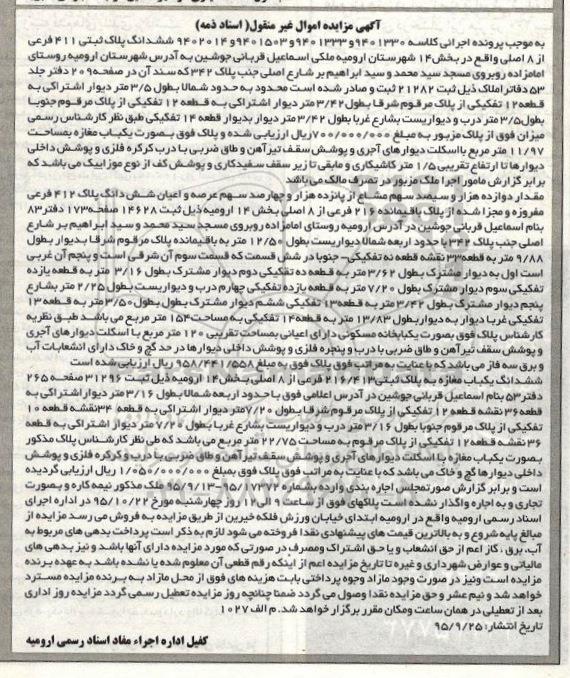 آگهی مزایده اموال غیر منقول( اسناد ذمه)
به موجب پرونده اجرائی کلاسه ۹۴۰۱۳۳۰ و ۹۴۰۱۳۳۳ و ۹۴۰۱۵۰۳ و ۹۴۰۲۰۱۴ ششدانگ پلاک ثبتی ۴۱۱ فرعی
از ۸ اصلی واقع در بخش ۱۴ شهرستان ارومیه ملکی اسماعیل قربانی جوشین به آدرس شهرستان ارومیه روستای
امامزاده روبروی مسجد سید محمد و سید ابراهیم بر شارع اصلی جنب پلاک ۳۴۲ که سند آن در صفحه ۲۰۹ دفتر جلد
۵۳ دفاتر املاک ذیل ثبت ۲۱۲۸۲ ثبت و صادر شده است محدود به حدود شمالا بطول ۳/۵ متر دیوار اشتراکی به
قطعه ۱۲ تفکیکی از پلاک مرقوم شرقا بطول ۳/۴۲ متر دیوار اشتراکی به قطعه ۱۲ تفکیکی از پلاک مرقوم جنوبا
بطول ۳/۵ متر درب و دیواریست بشارع غربا بطول ۳/۴۲ متر دیوار بدیوار قطعه ۱۴ تفکیکی طبق نظر کارشناس رسمی
میزان فوق از پلاک مزبور به مبلغ ۷۰۰/۰۰۰/۰۰۰ ریال ارزیابی شده و پلاک فوق بصورت یکباب مغازه بمساحت
۱۱/۹۷ متر مربع بااسکلت دیوارهای آجری و پوشش سقف تیرآهن و طاق ضربی با درب کرکره فلزی و پوشش داخلی
دیوارها تا ارتفاع تقریبی ۱/۵ متر کاشیکاری و مابقی تا زیر سقف سفیدکاری و پوشش کف از نوع موزاییک می باشد که
برابر گزارش مامور اجرا ملک مزبور در تصرف مالک می باشد
مقدار دوازده هزار و سیصد سهم مشاع از پانزده هزار و چهارصد سهم عرصه و اعیان شش دانگ پلاک ۴۱۲ فرعی
مفروزه و مجزا شده از پلاک باقیمانده ۲۱۶ فرعی از ۸ اصلی بخش ۱۴ ارومیه ذیل ثبت ۱۴۶۲۸ صفحه ۱۷۳ دفتر ۸۳
بنام اسماعیل قربانی جوشین در آدرس ارومیه روستای امامزاده روبروی مسجد سید محمد و سید ابراهیم بر شارع
اصلی جنب پلاک ۳۴۲ با حدود اربعه شمالا دیواریست بطول ۱۲/۵۰ متر به باقیمانده پلاک مرقوم شرقا بدیوار بطول
۹/۸۸ متر به قطعه ۳۳ نقشه قطعه نه تفکیکی- جنوبا در شش قسمت که قسمت سوم آن شرقی است و پنجم آن غربی
است اول به دیوار مشترک بطول ۳/۶۲ متر به قطعه ده تفکیکی دوم دیوار مشترک بطول ۳/۱۶ متر به قطعه یازده
تفکیکی سوم دیوار مشترک بطول ۷/۲۰ متر به قطعه یازده تفکیکی چهارم درب و دیواریست بطول ۲/۲۵ متر بشارع
پنجم دیوار مشترک بطول ۳/۴۲ متر به قطعه ۱۳ تفکیکی ششم دیوار مشترک بطول بطول ۳/۵۰ متر به قطعه ۱۳
تفکیکی غربا دیوار به دیوار بطول ۱۳/۸۳ متر به قطعه ۱۴ تفکیکی به مساحت ۱۵۴ متر مربع می باشد طبق نظریه
کارشناس پلاک فوق بصورت یکبابخانه مسکونی دارای اعیانی بمساحت تقریبی ۱۲۰ متر مربع با اسکلت دیوارهای آجری
و پوشش سقف تیرآهن و طاق ضربی با درب و پنجره فلزی و پوشش داخلی دیوارها در حد گچ و خاک دارای انشعابات آب
و برق سه فاز می باشد که با عنایت به مراتب فوق پلاک فوق به مبلغ ۹۵۸/۴۴۱/۵۵۸ ریال ارزیابی شده است
ششدانگ یکباب مغازه به پلاک ثبتی ۲۱۶/۴۱۳ فرعی از ۸ اصلی بخش ۱۴ ارومیه ذیل ثبت ۳۱۲۹۶ صفحه ۲۶۵
دفتر ۵۳ بنام اسماعیل قربانی جوشین در آدرس اعلامی فوق با حدود اربعه شمالا بطول ۳/۱۶ متر دیوار اشتراکی به
قطعه ۳۶ نقشه قطعه ۱۲ تفکیکی از پلاک مرقوم شرقا بطول ۷/۲۰ متر دیوار اشتراکی به قطعه ۳۴ نقشه قطعه ۱۰
تفکیکی از پلاک مرقوم جنوبا بطول ۳/۱۶ متر درب و دیواریست بشارع غربا بطول ۷/۲۰ متر دیوار اشتراکی به قطعه
۳۶ نقشه قطعه ۱۲ تفکیکی از پلاک مرقوم به مساحت ۲۲/۷۵ متر مربع می باشد که طی نظر کارشناس پلاک مذکور
بصورت یکباب مغازه با اسکلت دیوارهای آجری و پوشش سقف تیرآهن و طاق ضربی با درب و کرکره فلزی و پوشش
داخلی دیوارها گچ و خاک می باشد که با عنایت به مراتب فوق پلاک فوق بمبلغ ۱/۰۵۰/۰۰۰/۰۰۰ ریال ارزیابی گردیده
است و برابر گزارش صورتمجلس اجاره بندی وارده بشماره ۹۵/۱۷۳۷۲-۹۵/۹/۱۳ ملک مذکور نیمه کاره و بصورت
تجاری و به اجاره واگذار نشده است پلاکهای فوق از ساعت ۹ الی ۱۲ روز چهارشنبه مورخ ۹۵/۱۰/۲۲ در اداره اجرای
اسناد رسمی ارومیه واقع در ارومیه ابتدای خیابان ورزش فلکه خیرین از طریق مزایده به فروش می رسد مزایده از
مبالغ پایه شروع و به بالاترین قیمت های پیشنهادی نقدا فروخته می شود لازم به ذکر است پرداخت بدهی های مربوط به
آب، برق ، گاز اعم از حق انشعاب و یا حق اشتراک و مصرف در صورتی که مورد مزایده دارای آنها باشد و نیز بدهی های
مالیاتی و عوارض شهرداری و غیره تا تاریخ مزایده اعم از اینکه رقم قطعی آن معلوم شده یا نشده باشد به عهده برنده
مزایده است ونیز در صورت وجود مازاد وجوه پرداختی بابت هزینه های فوق از محل مازاد به برنده مزایده مسترد
خواهد شد و نیم عشر و حق مزایده نقدا وصول می گردد ضمنا چنانچه روز مزایده تعطیل رسمی گردد مزایده روز اداری
بعد از تعطیلی در همان ساعت ومکان مقرر برگزار خواهد شد. م الف ۱۰۲۷
تاریخ انتشار: ۹۵/۹/۲۵
کفیل اداره اجراء مفاد اسناد رسمی ارومیه